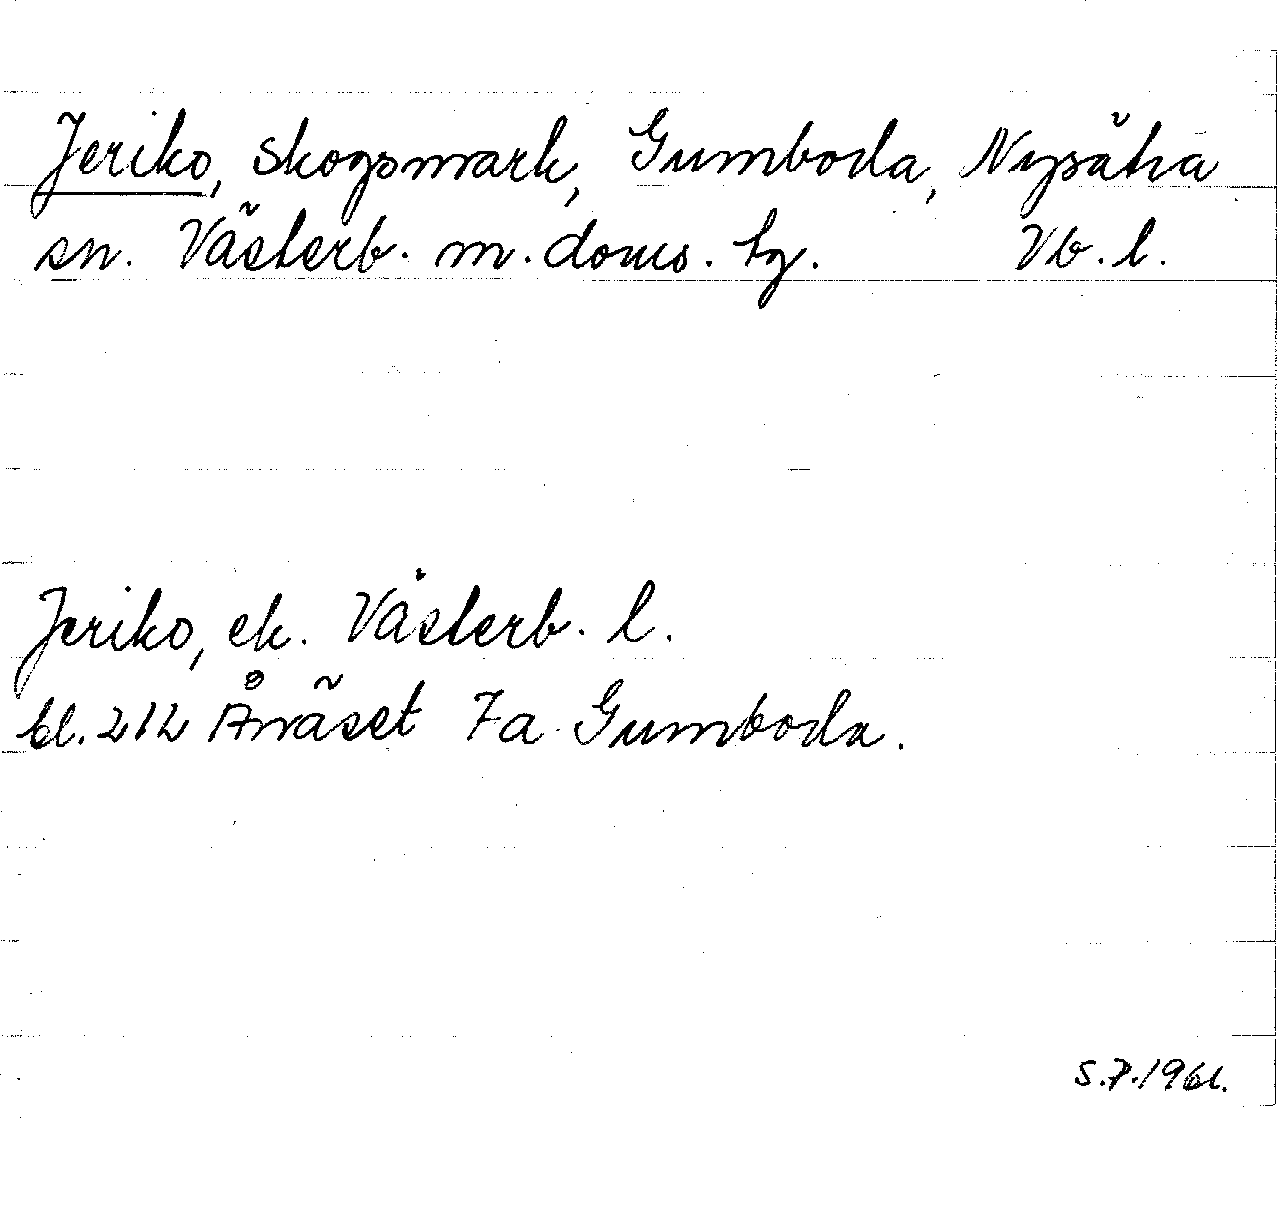 Jeriko, skogsmark, Gumboda, Nysätra
sn. Västerb. m. doms. tg. Vb. l.
Jeriko, ek. Västerb. l.
bl. 212 Ånäset 7a Gumboda.
S.7.1961.